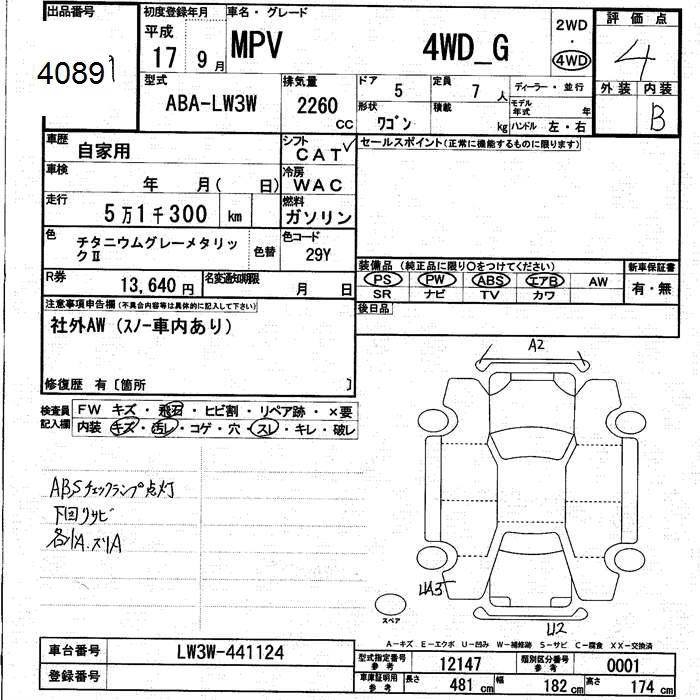 出品番号
4089
初度登録年月
平成
17 9月
車名・グレード
MPV 4WD_G
2WD
・
4WD
評価点
4
外装 内装
B
型式
ABA-LW3W
排気量
2260
CC
ドア 5
定員 7 人
ディーラー・並行
形状 ワゴン
積載 kg
モデル年式 年
ハンドル 左・右
車歴 自家用
シフト CAT
セールスポイント(正常に機能するものに限ります)
車検 年 月( 日)
冷房 WAC
走行 5万1千300 km
燃料 ガソリン
色 チタニウムグレーメタリックⅡ
色替
色コード 29Y
装備品 (純正品に限り○をつけてください)
PS PW ABS エアB AW
SR ナビ TV カワ
新車保証書
有・無
R券 13,640円
名変通知期限 月 日
後日品
注意事項申告欄(不具合内容等は具体的に記入して下さい)
社外AW (スノー車内あり)
修復歴 有〔箇所 〕
検査員記入欄
FW キズ・飛石・ヒビ割・リペア跡・×要
内装 キズ・汚レ・コゲ・穴・スレ・キレ・破レ
ABSチェックランプ点灯
下回リサビ
各1A.スリA
A2
UA3
スペア
U2
A-キズ E-エクボ U-凹み W-補修跡 S-サビ C-腐食 XX-交換済
車台番号 LW3W-441124
登録番号
型式指定番号参考 12147
類別区分番号参考 0001
車庫証明用参考 長さ 481cm 幅 182cm 高さ 174cm